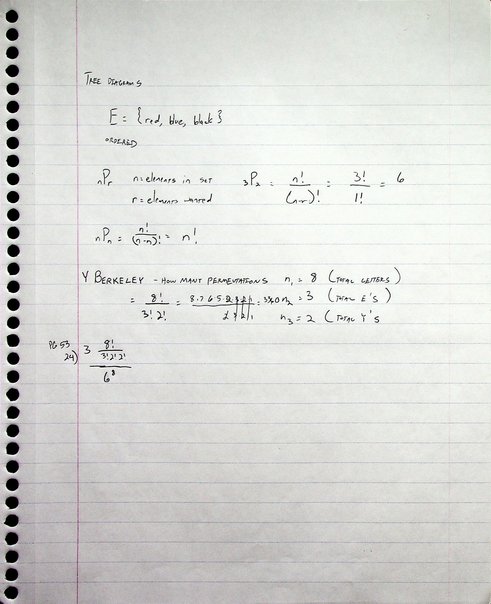 TREE DIAGRAMS
E = {red, blue, black}
ORDERED
nPr n = elements in set 3P2 = n!/(n-r)! = 3!/1! = 6
r = elements wanted
nPn = n!/(n-n)! = n!
Y BERKELEY - HOW MANY PERMUTATIONS n1 = 8 (TOTAL LETTERS)
= 8!/3!2! = = 3360 n2 = 3 (TOTAL E'S)
n3 = 2 (TOTAL Y'S
PG 53
24) 3 8!/3!2!2!
6^8